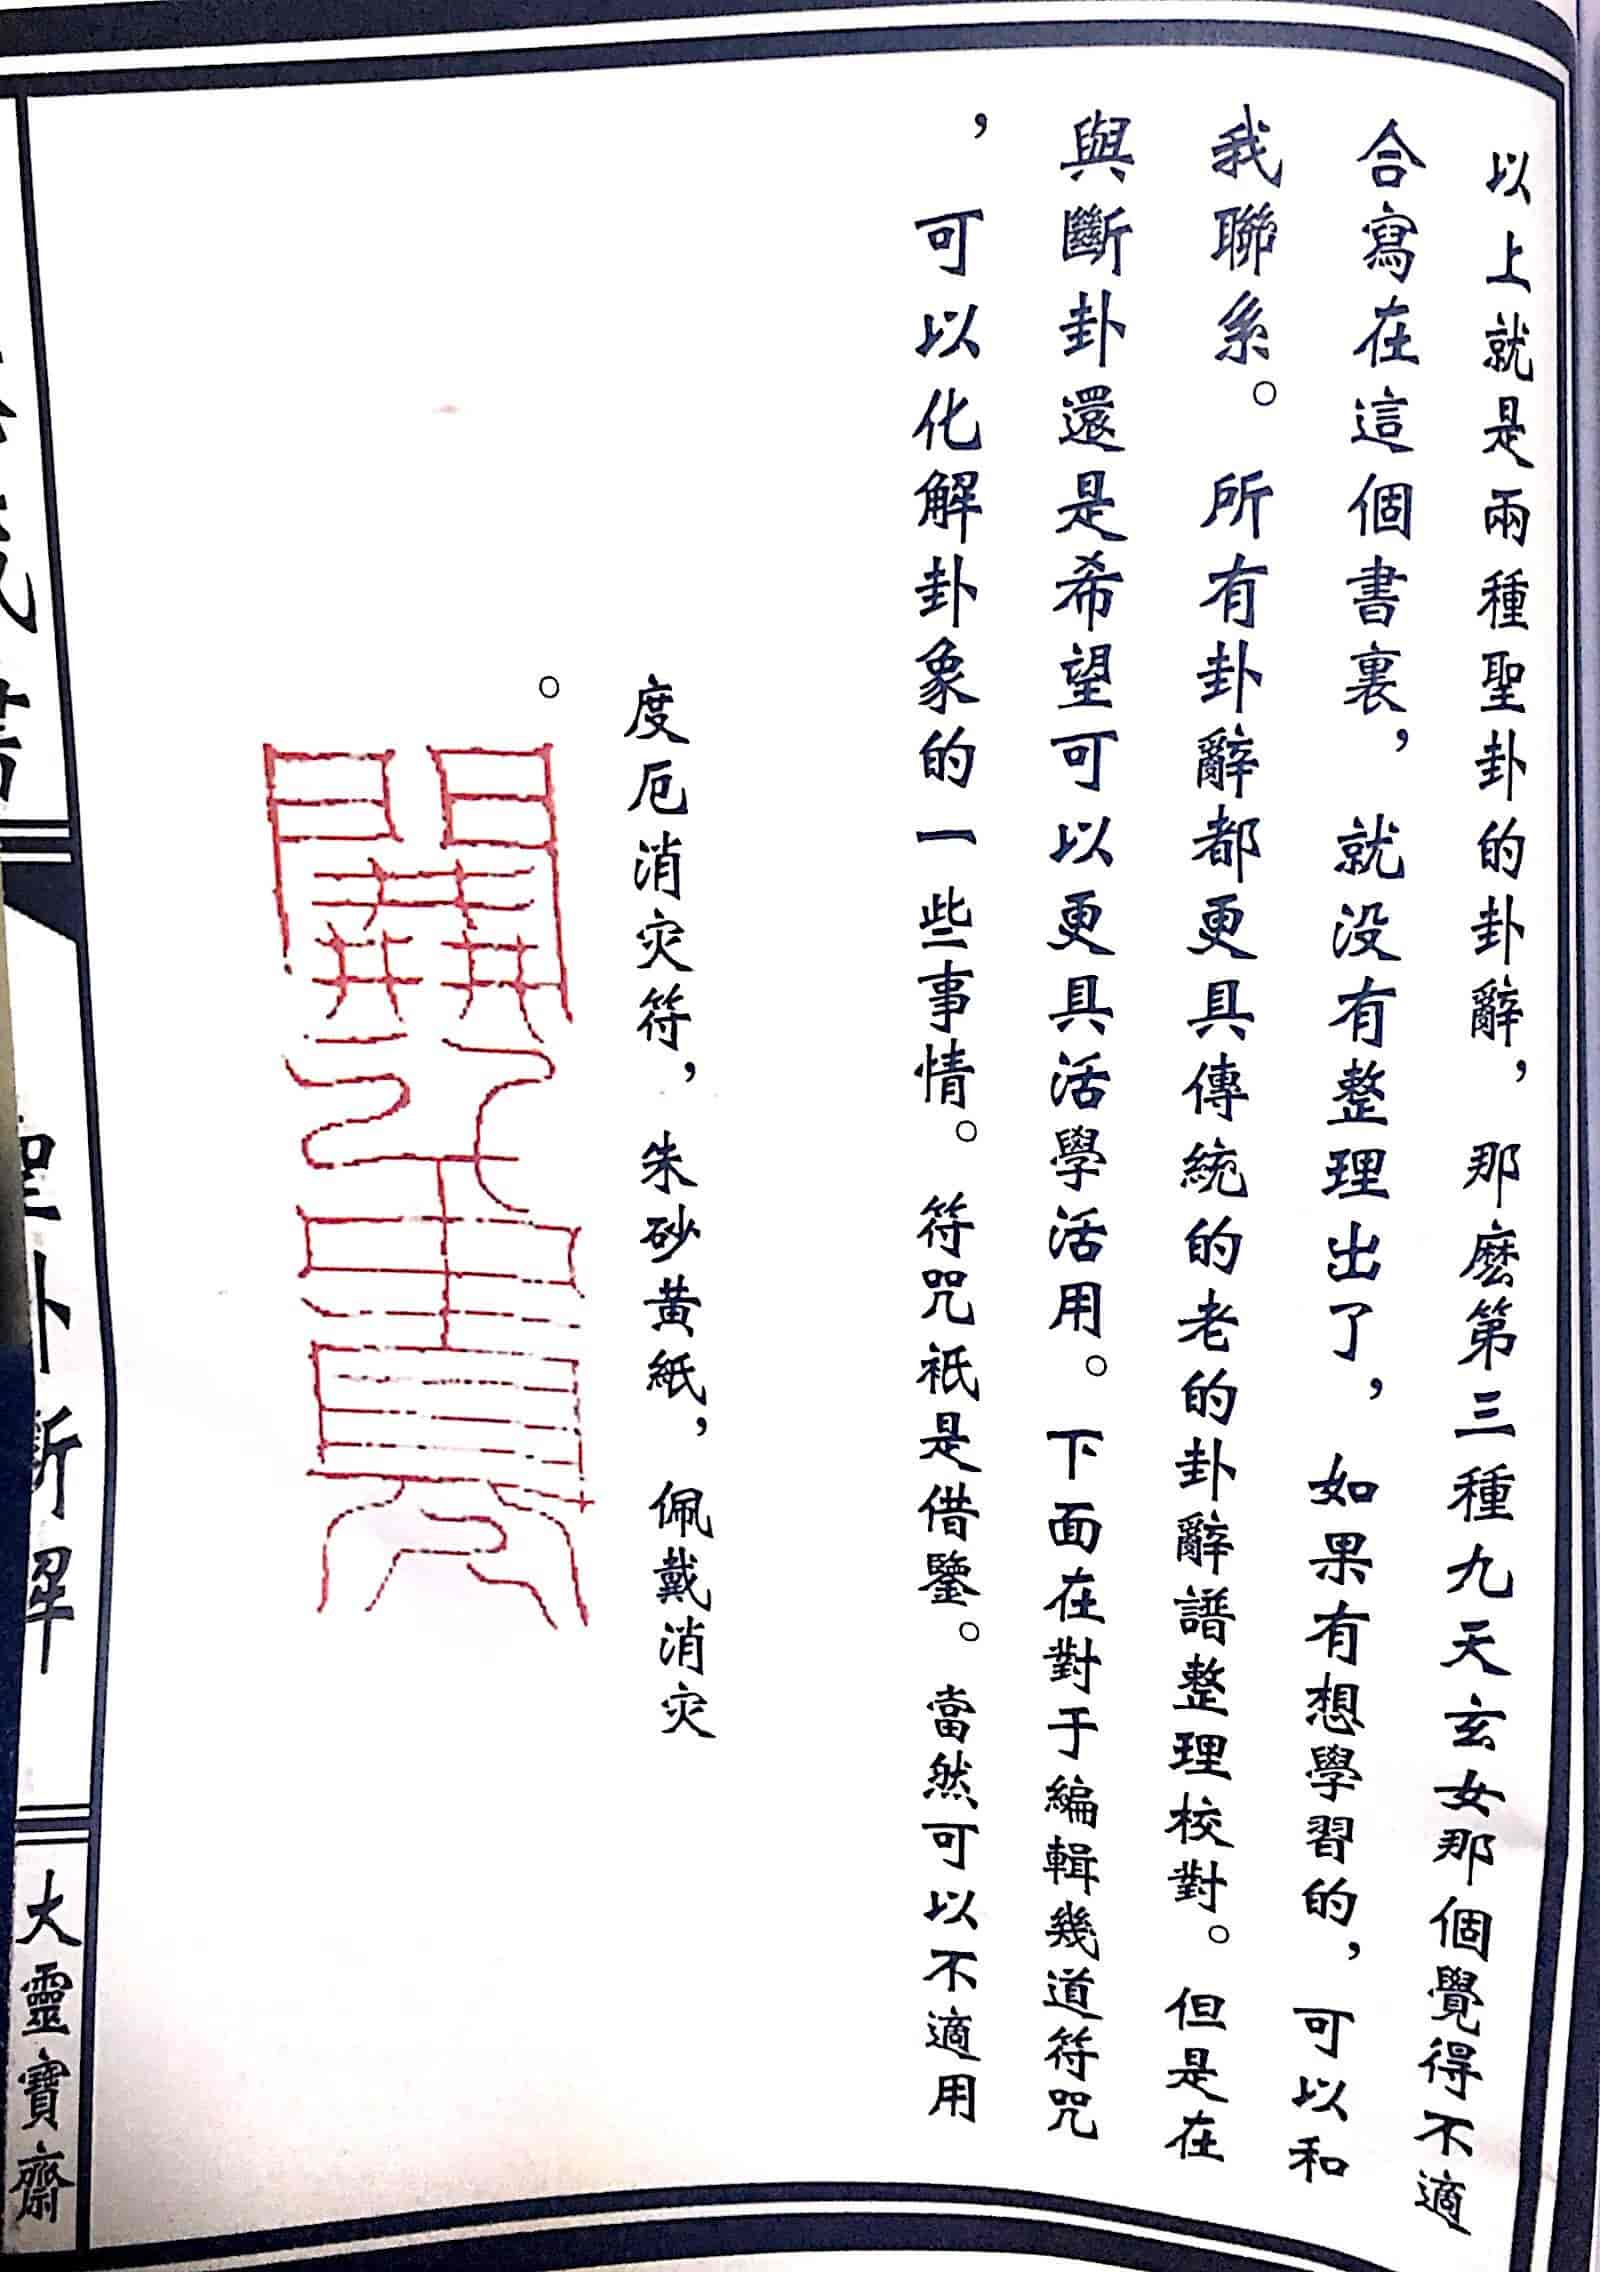 以上就是兩種聖卦的卦辭，那麽第三種九天玄女那個覺得不適
合寫在這個書裏，就没有整理出了，如果有想學習的，可以和
我聯系。所有卦辭都更具傳統的老的卦辭譜整理校對。但是在
與斷卦還是希望可以更具活學活用。下面在對于編輯幾道符咒
，可以化解卦象的一些事情。符咒衹是借鑒。當然可以不適用
度厄消灾符，朱砂黄紙，佩戴消灾
。
聖卦斷解
大靈寶齋